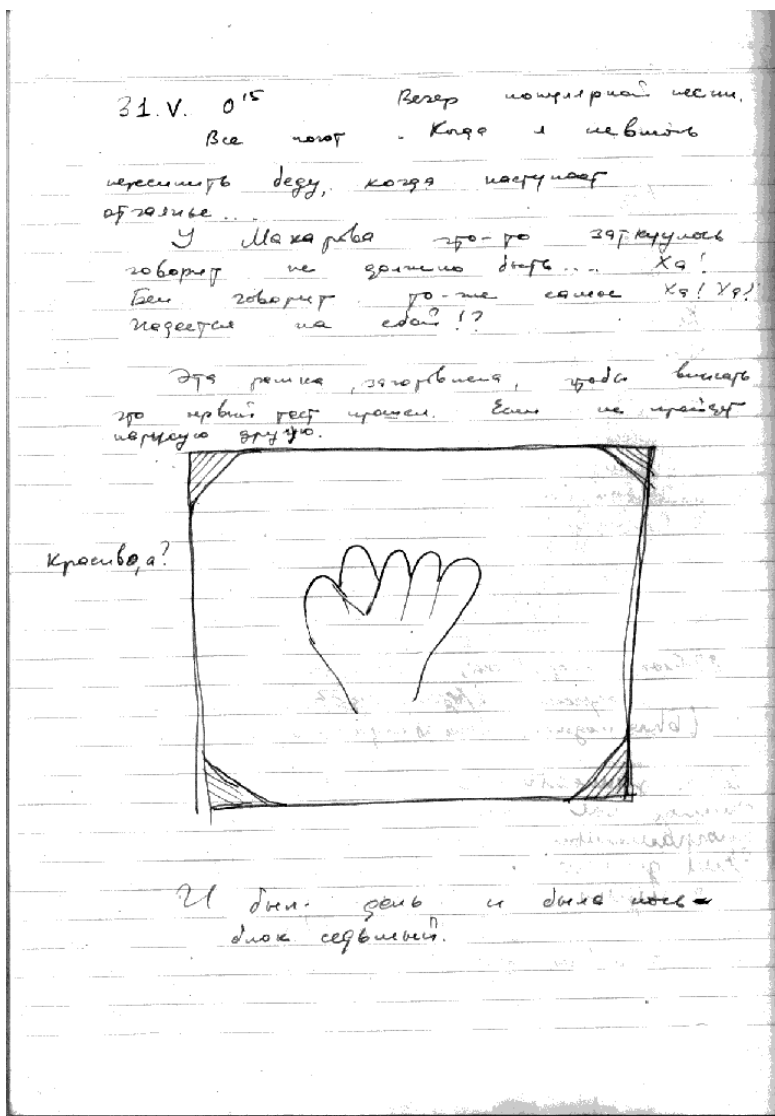 31.V. 0¹⁵ Вечер популярной песни.
Все поют. Когда я невмочь
пересилить беду, когда наступает
отчаянье...
У Макарова что-то заткнулось
говорит не должно быть.... Ха!
Бен говорит то-же самое Ха! Ха!
Надеется на сбой!?
Эта рамка, заготовлена, чтобы вписать
что первый тест прошел. Если не пройдет
нарисую другую.
Красиво, а?
И был день и была ночь -
блок седьмый.